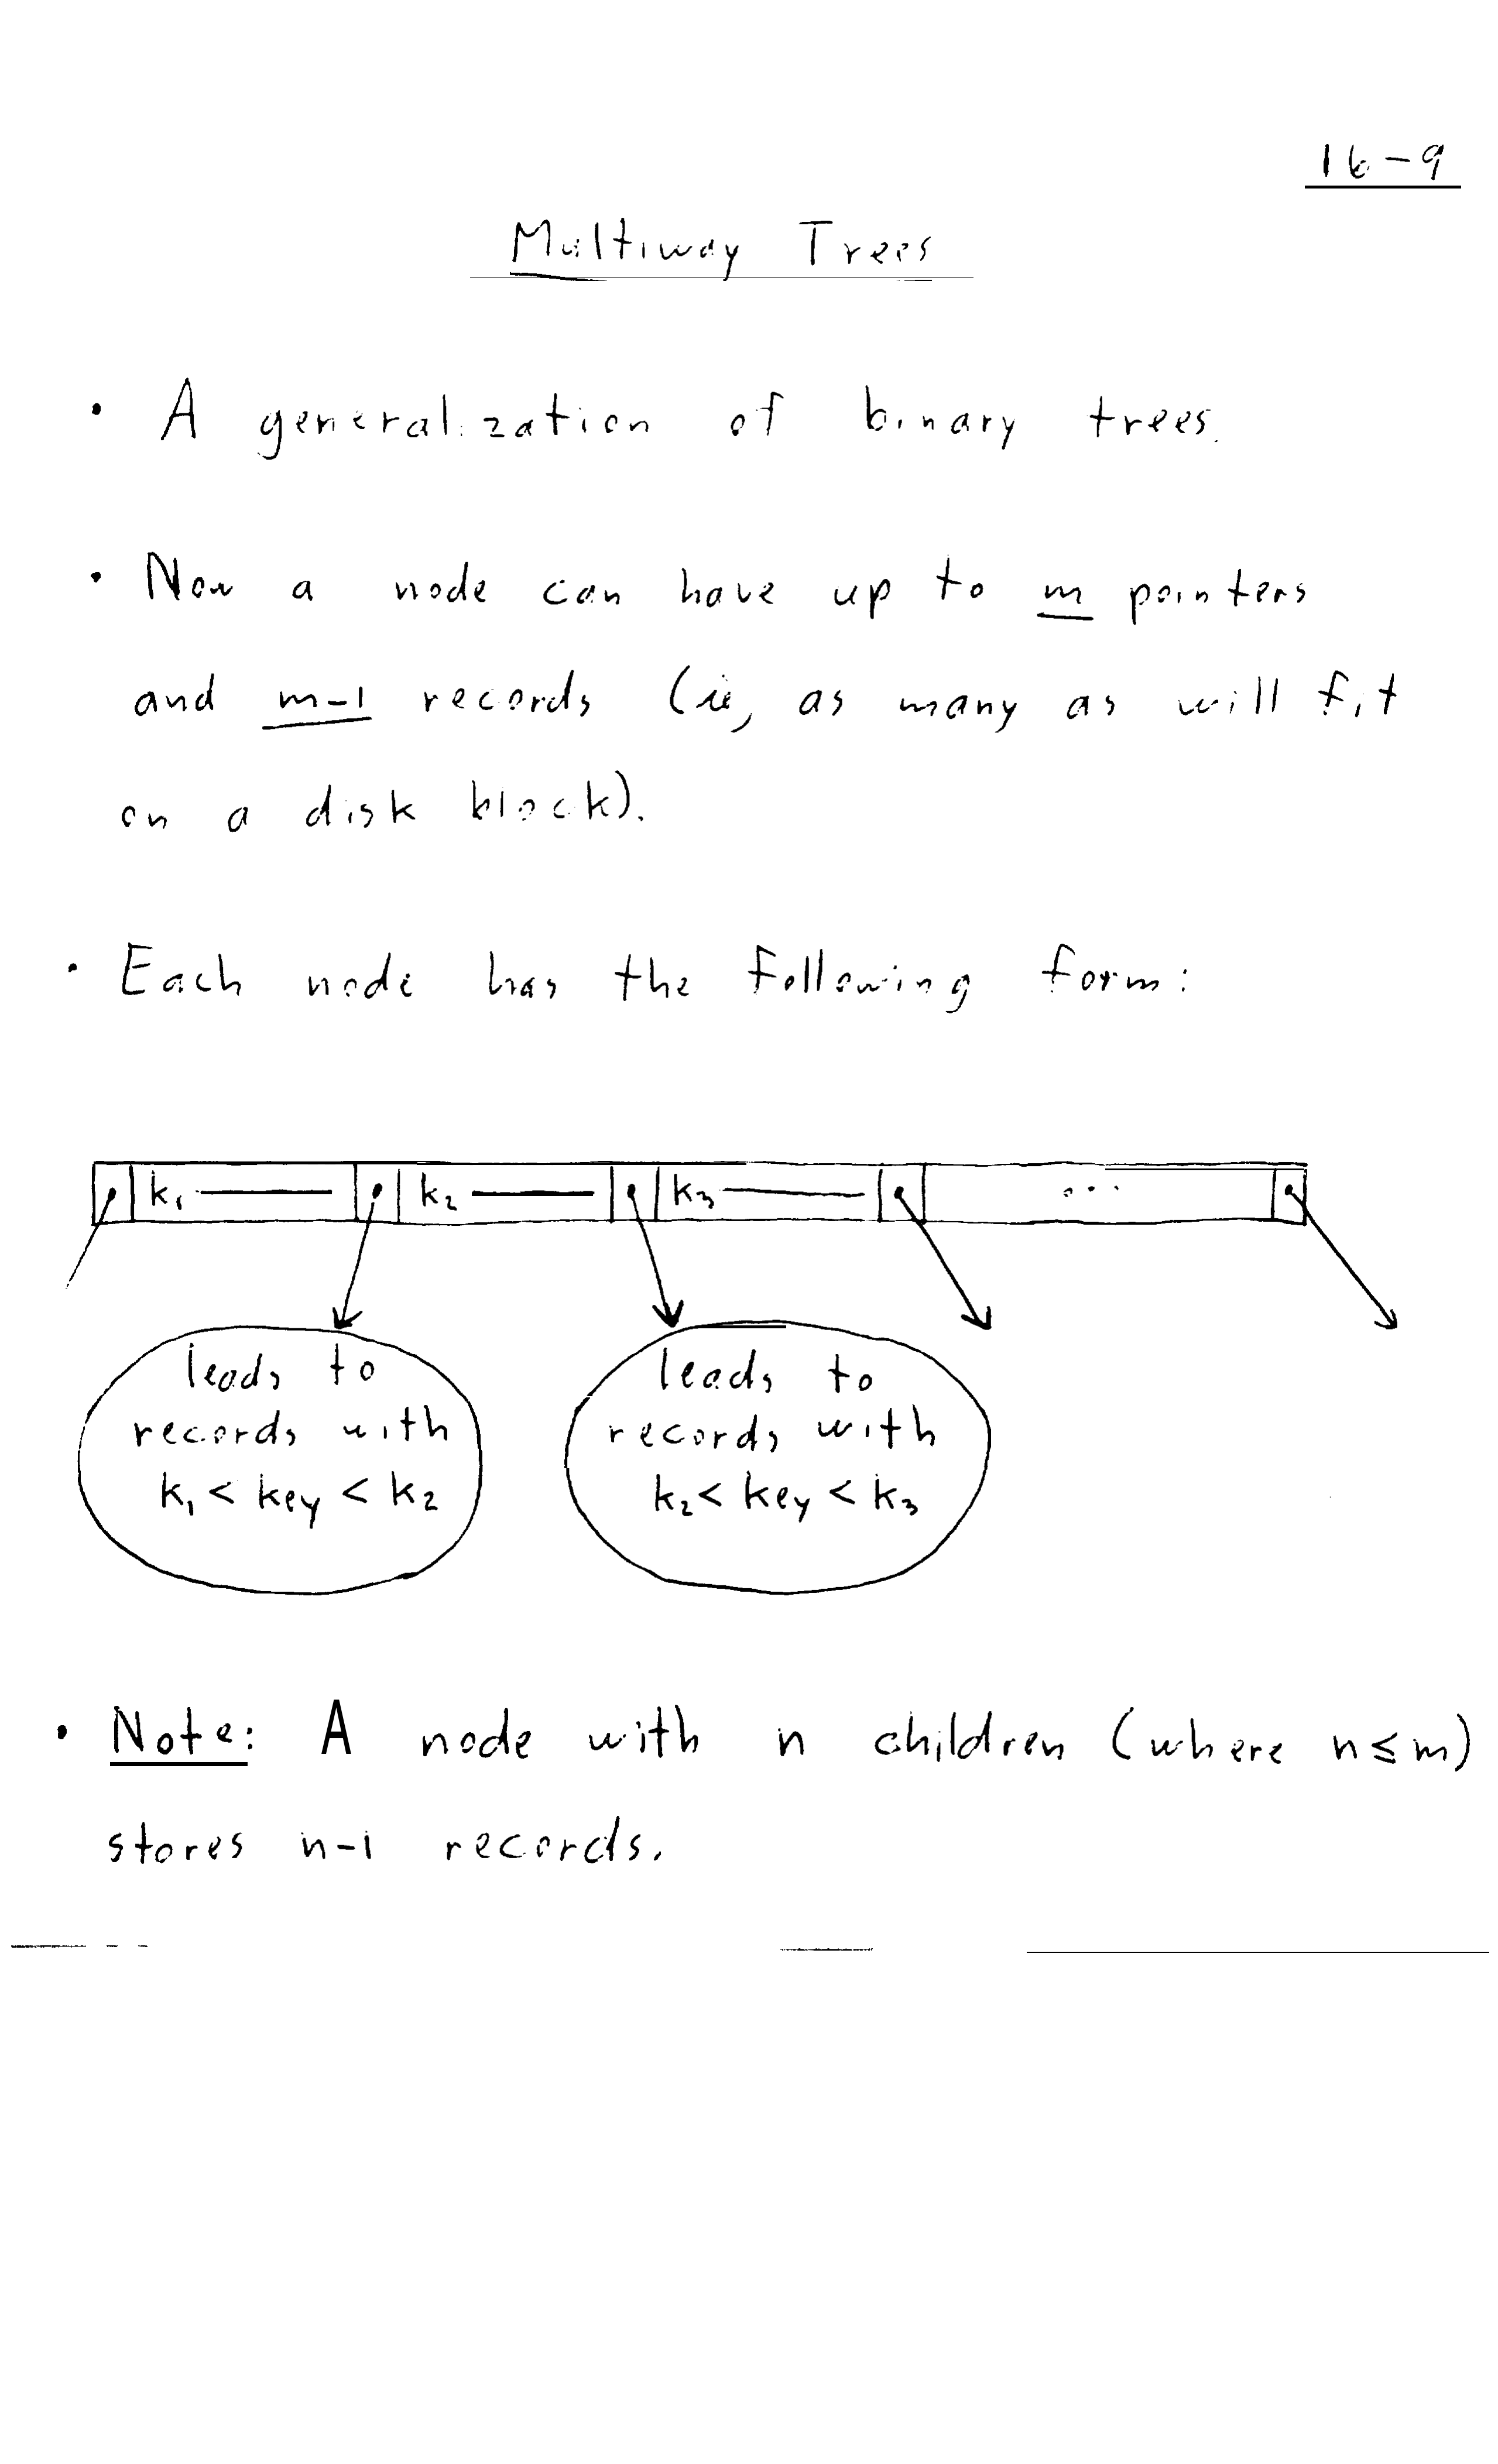 16-9
Multiway Trees
• A generalization of binary trees.
• Now a node can have up to m pointers
and m-1 records (ie, as many as will fit
on a disk block).
• Each node has the following form:
k₁ k₂ k₃ ...
leads to
records with
k₁ < key < k₂
leads to
records with
k₂ < key < k₃
• Note: A node with n children (where n ≤ m)
stores n-1 records.